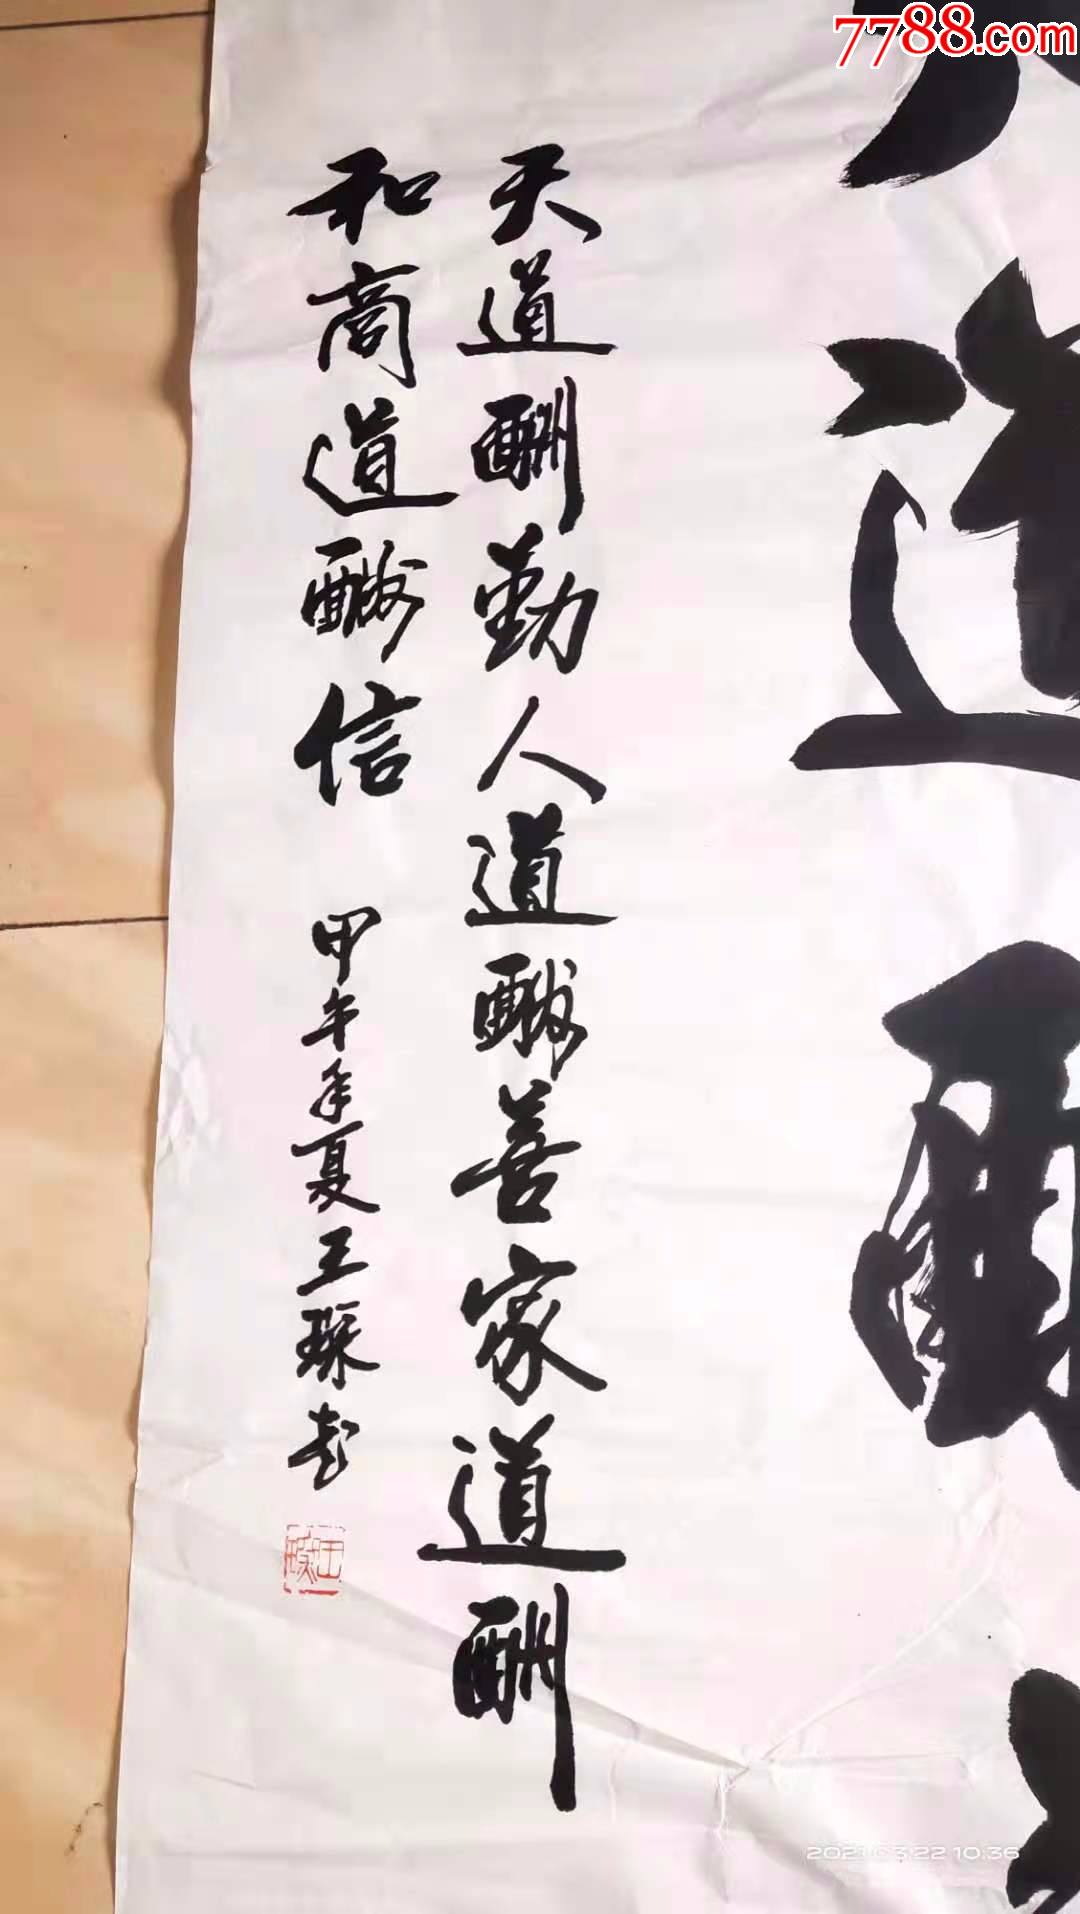 7788.com
道酬
天道酬勤人道酬善家道酬
和商道酬信
甲午年夏王琛书
2021.03.22 10:36